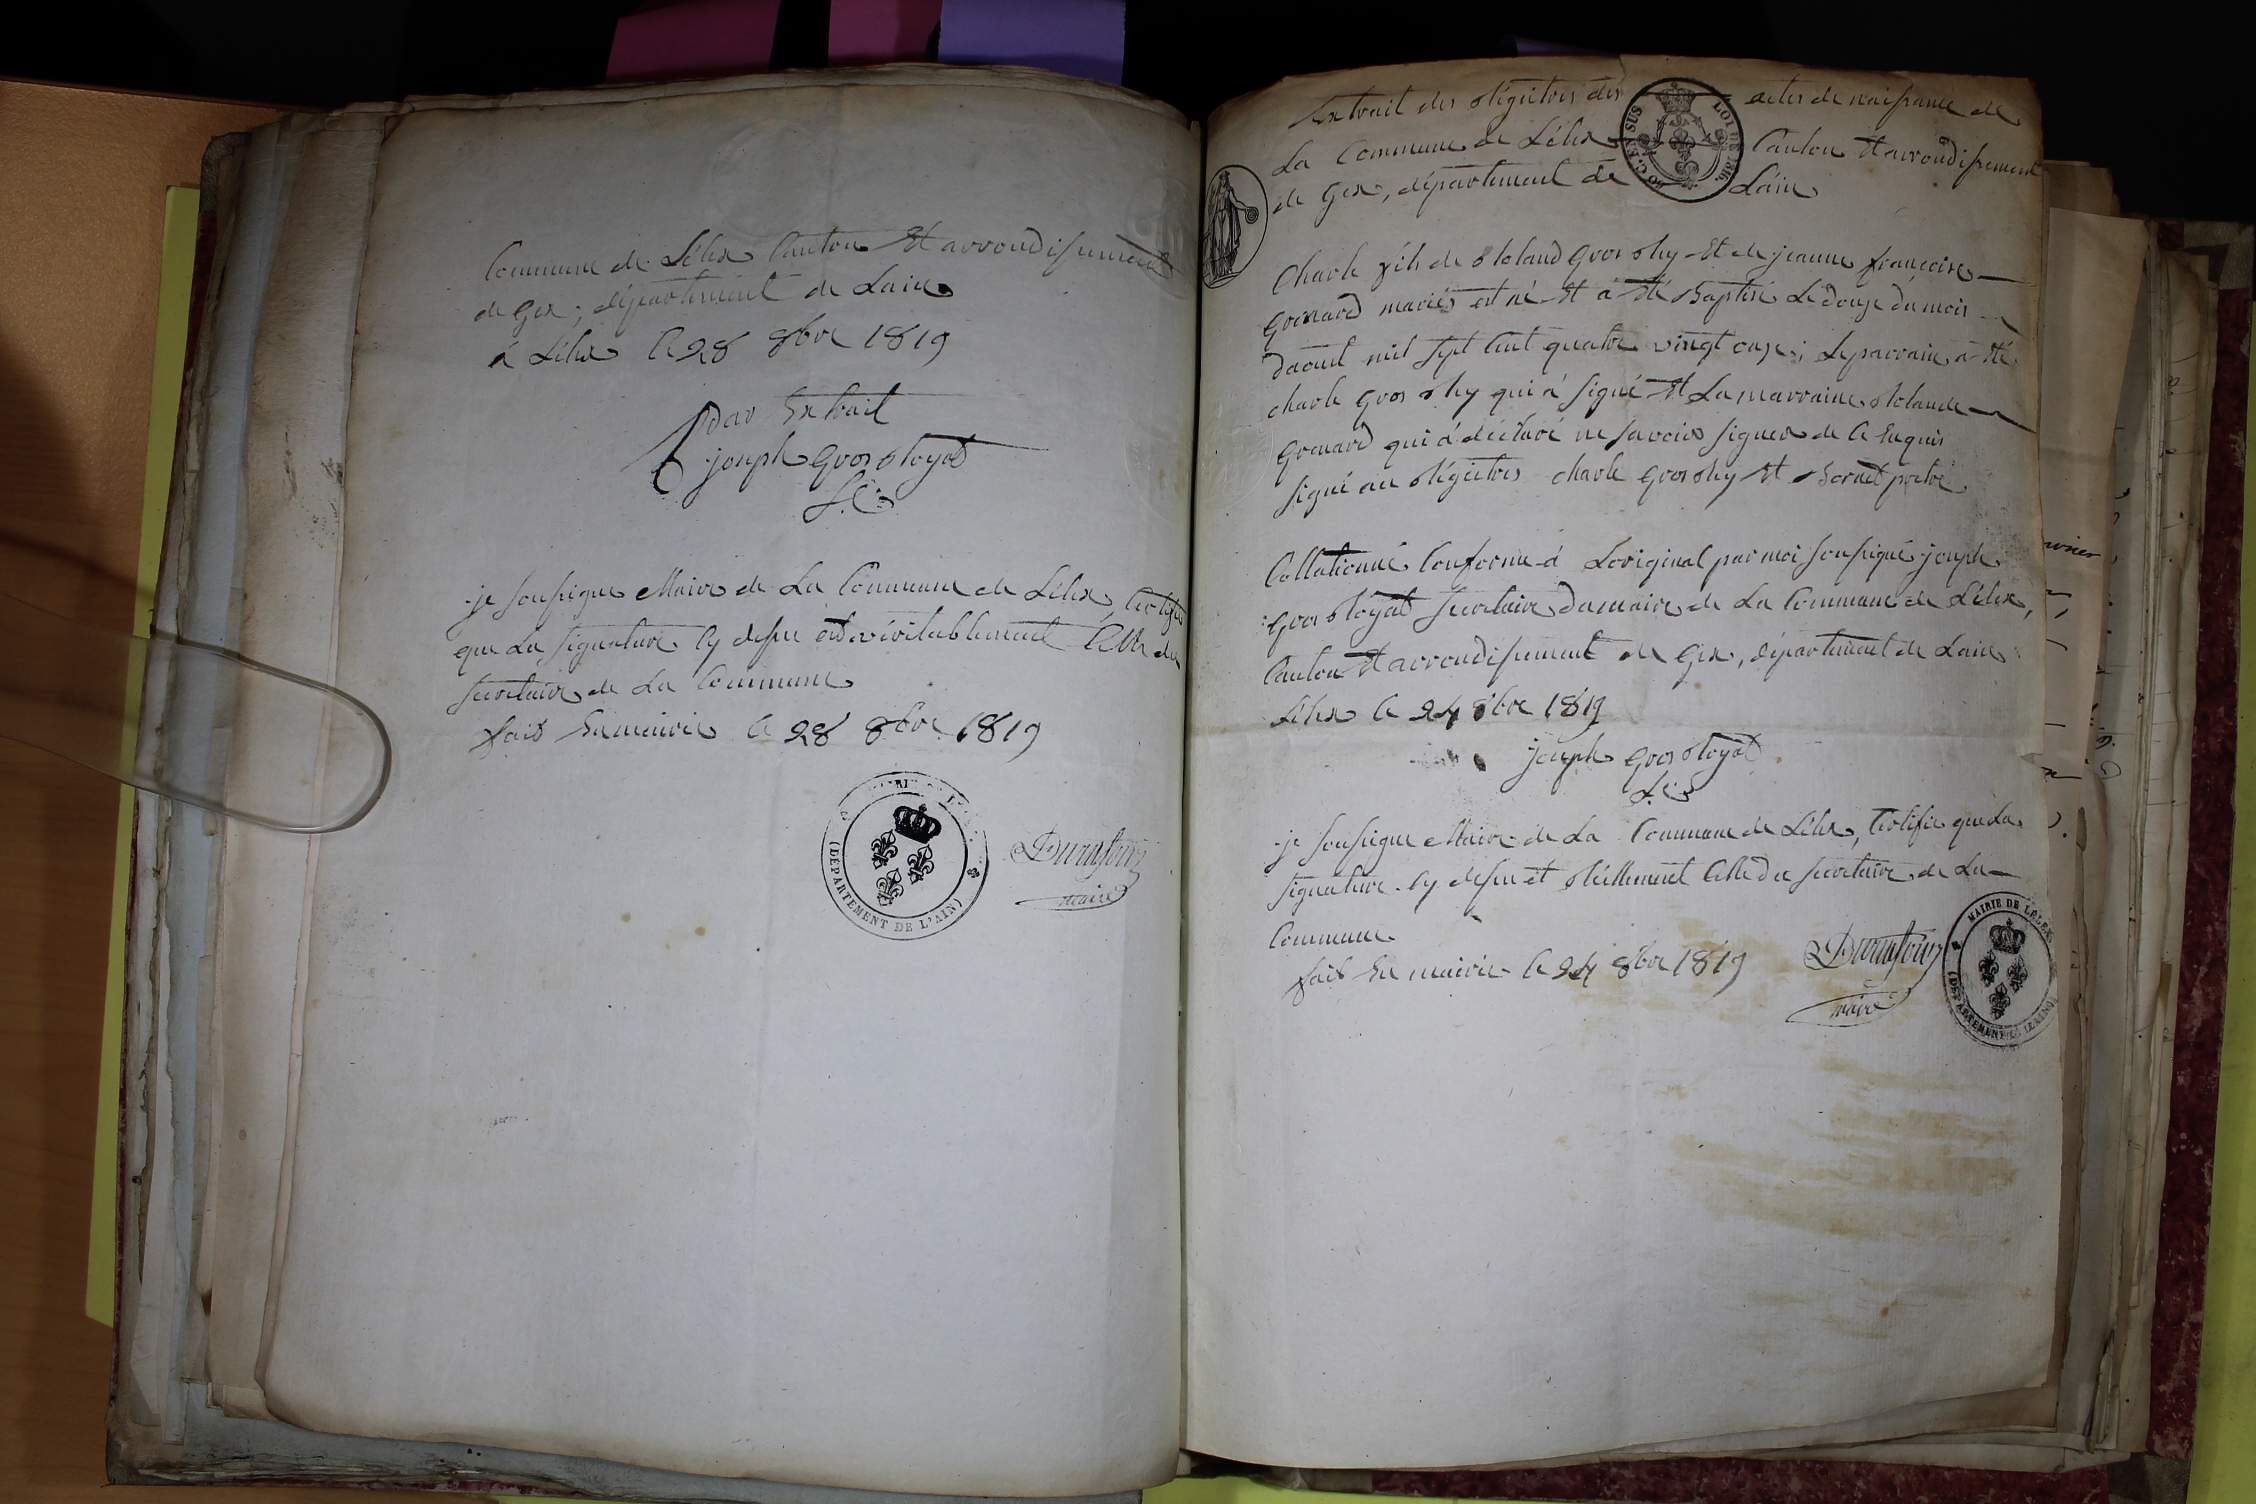 Commune de Lélex Canton Et arrondissement
de Gex ; département de Lain
á Lélex le 28 8bre 1819
par Extrait
joseph Gros Royat
S.C.
je soussigne Maire de La Commune de Lélex, Certifie
que La signature Cy dessu est véritablement Celle du
secretaire de La Commune
fait En mairie le 28 8bre 1819
(DEPARTEMENT DE L'AIN)
Durafour
maire
Extrait des Régistres des actes de naissance de
La Commune de Lélex Canton Et arrondissement
de Gex, département de Lain
50 C. EN SUS LOI DE 1816.
Charle fils de Roland Gros Rhy Et de jeanne françoise
Gronard mariés est né Et á été Baptisé Le douze du mois
daout mil sept Cent quatre vingt onze ; Le parrain a été
charle Gros Rhy qui á signé Et La marraine Rolande
Gronard qui á déclaré ne savoir signer de Ce Enquis
signé au Régistres charle Gros Rhy Et prêtre
Collationné Conforme á Loriginal par moi soussigné joseph
Gros Royat secretaire de La Commune de Lélex,
Canton Et arrondissement de Gex, département de Lain
Lélex le 24 8bre 1819
joseph Gros Royat
S.C.
je soussigne Maire de La Commune de Lélex, Certifie que La
signature Cy dessu et Réellement Celle du secretaire de La
Commune
fait En mairie le 24 8bre 1819
Durafour
maire
MAIRIE DE LELEX
(DEPARTEMENT DE L'AIN)